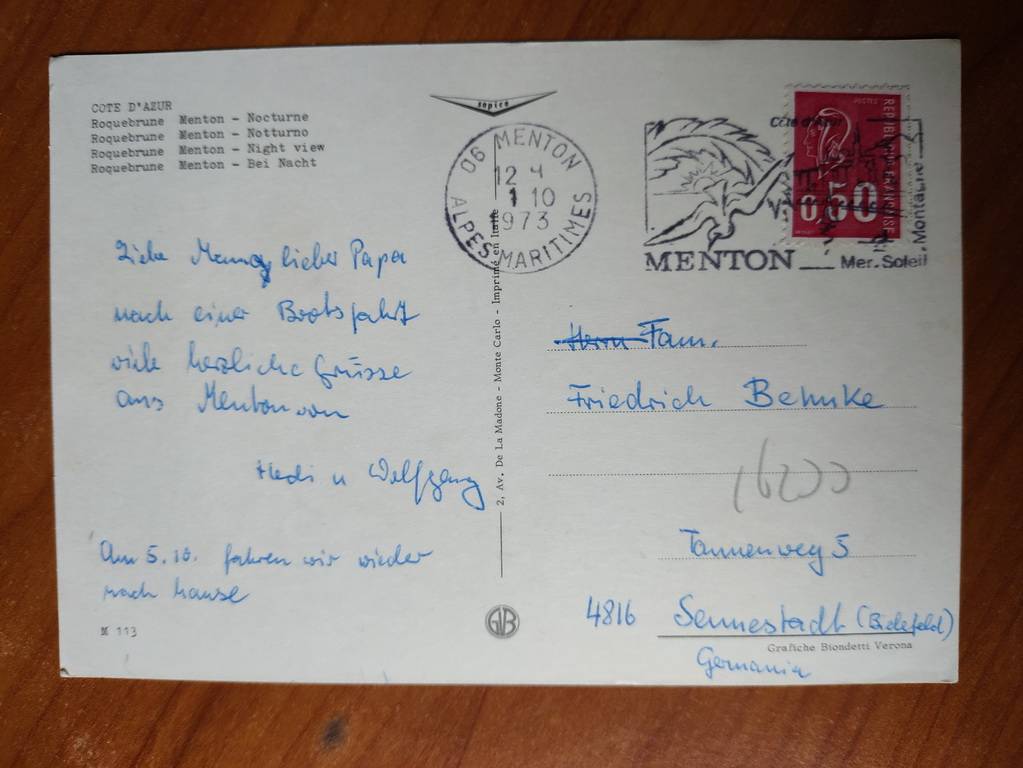 COTE D'AZUR
Roquebrune Menton - Nocturne
Roquebrune Menton - Notturno
Roquebrune Menton - Night view
Roquebrune Menton - Bei Nacht
sopico
06 MENTON
12 H
1 10
1973
ALPES MARITIMES
Côte d'Azur
POSTES
REPUBLIQUE FRANCAISE
0,50
MENTON
Mer. Soleil
. Montagne
Liebe Mama, lieber Papa
nach einer Bootsfahrt
viele herzliche Grüsse
aus Menton von
Hedi u Wolfgang
Am 5.10. fahren wir wieder
nach hause
M 113
2, Av. De La Madone - Monte Carlo - Imprimé en Italie
Herrn Fam.
Friedrich Behnke
Tannenweg 5
4816 Sennestadt (Bielefeld)
Grafiche Biondetti Verona
Germania
GVB